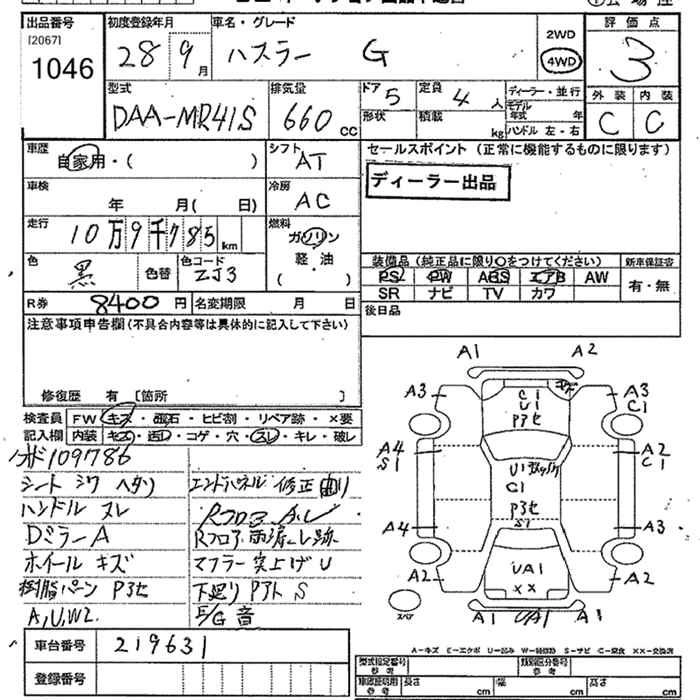 出品番号
[2067]
1046
初度登録年月
28 9月
車名・グレード
ハスラー G
2WD
4WD
評価点
3
型式
DAA-MR41S
排気量
660 CC
ドア 5
形状
定員 4 人
積載 kg
ディーラー・並行
モデル年式 年
ハンドル 左・右
外装 内装
C C
車歴
自家用・( )
シフト
AT
セールスポイント (正常に機能するものに限ります)
ディーラー出品
車検
年 月( 日)
冷房
AC
走行
10万9千785 km
燃料
ガソリン
軽・油
( )
色
黒
色替
色コード
ZJ3
装備品 (純正品に限り○をつけてください)
新車保証書
PS PW ABS エアB AW
SR ナビ TV カワ
有・無
R券 8400 円
名変期限 月 日
後日品
注意事項申告欄 (不具合内容等は具体的に記入して下さい)
修復歴 有 [箇所 ]
検査員記入欄
FW キズ・飛石・ヒビ割・リペア跡・×要
内装 キズ・汚レ・コゲ・穴・スレ・キレ・破レ
109786
シート シワ ヘタリ
ハンドル スレ
Dミラー A
ホイール キズ
樹脂パーン P3セ
A,U,W2
エンドパネル 修正 曲り
Rフロア A,U
Rフロア 雨漏レ跡
マフラー 突上げ U
下廻り Pアト S
E/G 音
A1 A2
A3
C1
U1
P3セ
A3
C1
A4
S1
A2
C1
U1
C1
P3セ
S1
A4
A3
A2
UA1
××
A2
スペア
A1 UA1 A1
車台番号 219631
登録番号
A-キズ E-エクボ U-凹み W-補修跡 S-サビ C-腐食 XX-交換済
型式指定番号
参考
類別区分番号
参考
車庫証明用
参考
長さ cm
幅 cm
高さ cm